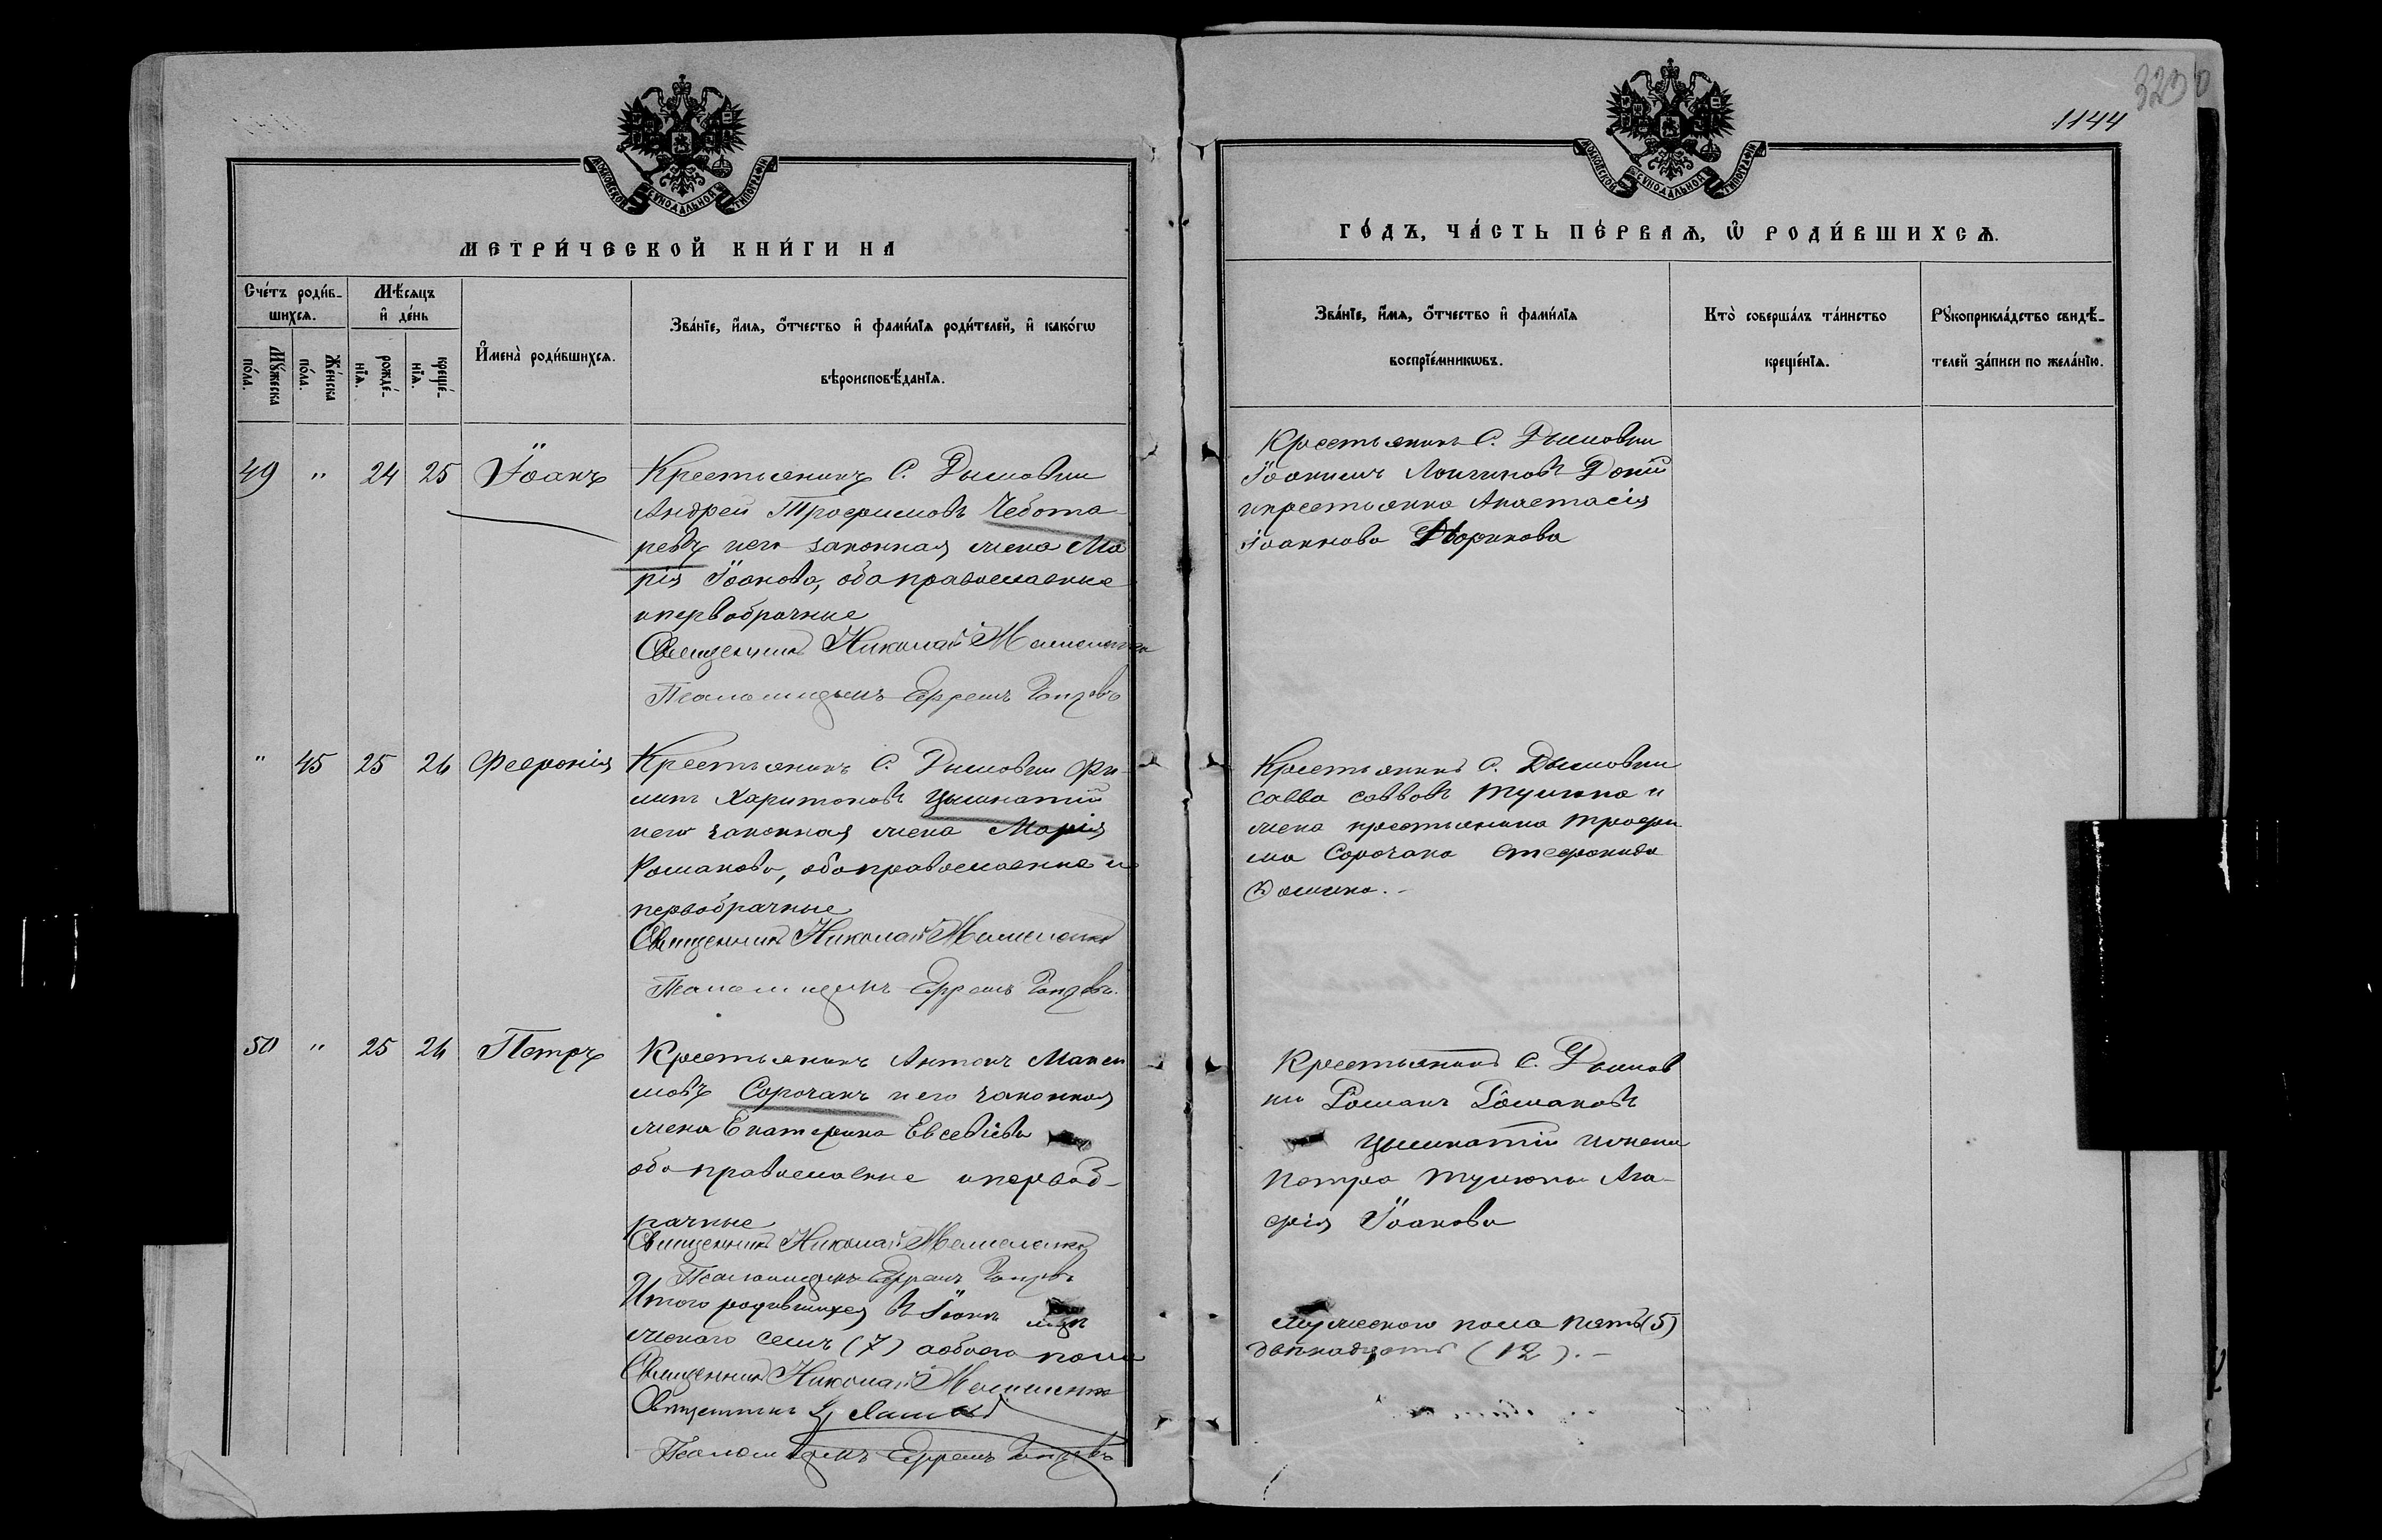 3230
1144
МОСКОВСКОЙ СѴНОДАЛЬНОЙ ТИПОГРАФІИ
МЕТРИ́ЧЕСКОЙ КНИ́ГИ НА
Сче́тъ роди́в-
шихсѧ.
Мѣ́сѧцъ
и҆ де́нь
Мꙋ́жеска
по́ла.
Же́нска
по́ла.
рожде́-
нїѧ.
креще́-
нїѧ.
И҆мена̀ роди́вшихсѧ.
Зва́нїе, и҆́мѧ, ѻ҆́тчество и҆ фами́лїѧ роди́телей, и҆ како́гѡ
вѣроисповѣ́данїѧ.
49 " 24 25 Іоанъ
Крестьянинъ С. Дымовки
Андрей Трофимовъ Чебота-
ревъ и его законная жена Ма
рія Іоанова, оба православные
и первобрачные
Священникъ Николай
Псаломщикъ Ефремъ
" 45 25 26 Февронія
Крестьянинъ С. Дымовки Фи-
липъ Харитоновъ Цымнатій
и его законная жена Марія
Романова, оба православные и
первобрачные
Священникъ Николай
Псаломщикъ Ефремъ
50 " 25 26 Петръ
Крестьянинъ Антонъ Макси
мовъ Сорочанъ и его законная
жена Екатерина Евсевіева
оба православные и первоб-
рачные
Священникъ Николай
Псаломщикъ Ефремъ
Итого родившихся въ Іюнѣ м-цѣ
женскаго семь (7) а обоего пола
Священникъ Николай
Священникъ
Псаломщикъ Ефремъ
МОСКОВСКОЙ СѴНОДАЛЬНОЙ ТИПОГРАФІИ
ГО́ДЪ, ЧА́СТЬ ПЕ́РВАѦ, Ѡ҆ РОДИ́ВШИХСѦ.
Зва́нїе, и҆́мѧ, ѻ҆́тчество и҆ фами́лїѧ
воспрїе́мникѡвъ.
Кто̀ соверша́лъ та́инство
креще́нїѧ.
Рꙋкоприкла́дство свидѣ́-
телей за́писи по жела́нїю.
Крестьянинъ С. Дымовки
Іоакимъ Лонгиновъ Доній
и крестьянка Анастасія
Іоаннова
Крестьянинъ С. Дымовки
Савва Саввовъ и
жена крестьянина Трофи
ма Сорочана Стефанида
Крестьянинъ С. Дымов
ки Романъ Романовъ
Цымнатій и жена
Петра Ага-
фія Іоанова
мужескаго пола пять (5)
двѣнадцать (12). –